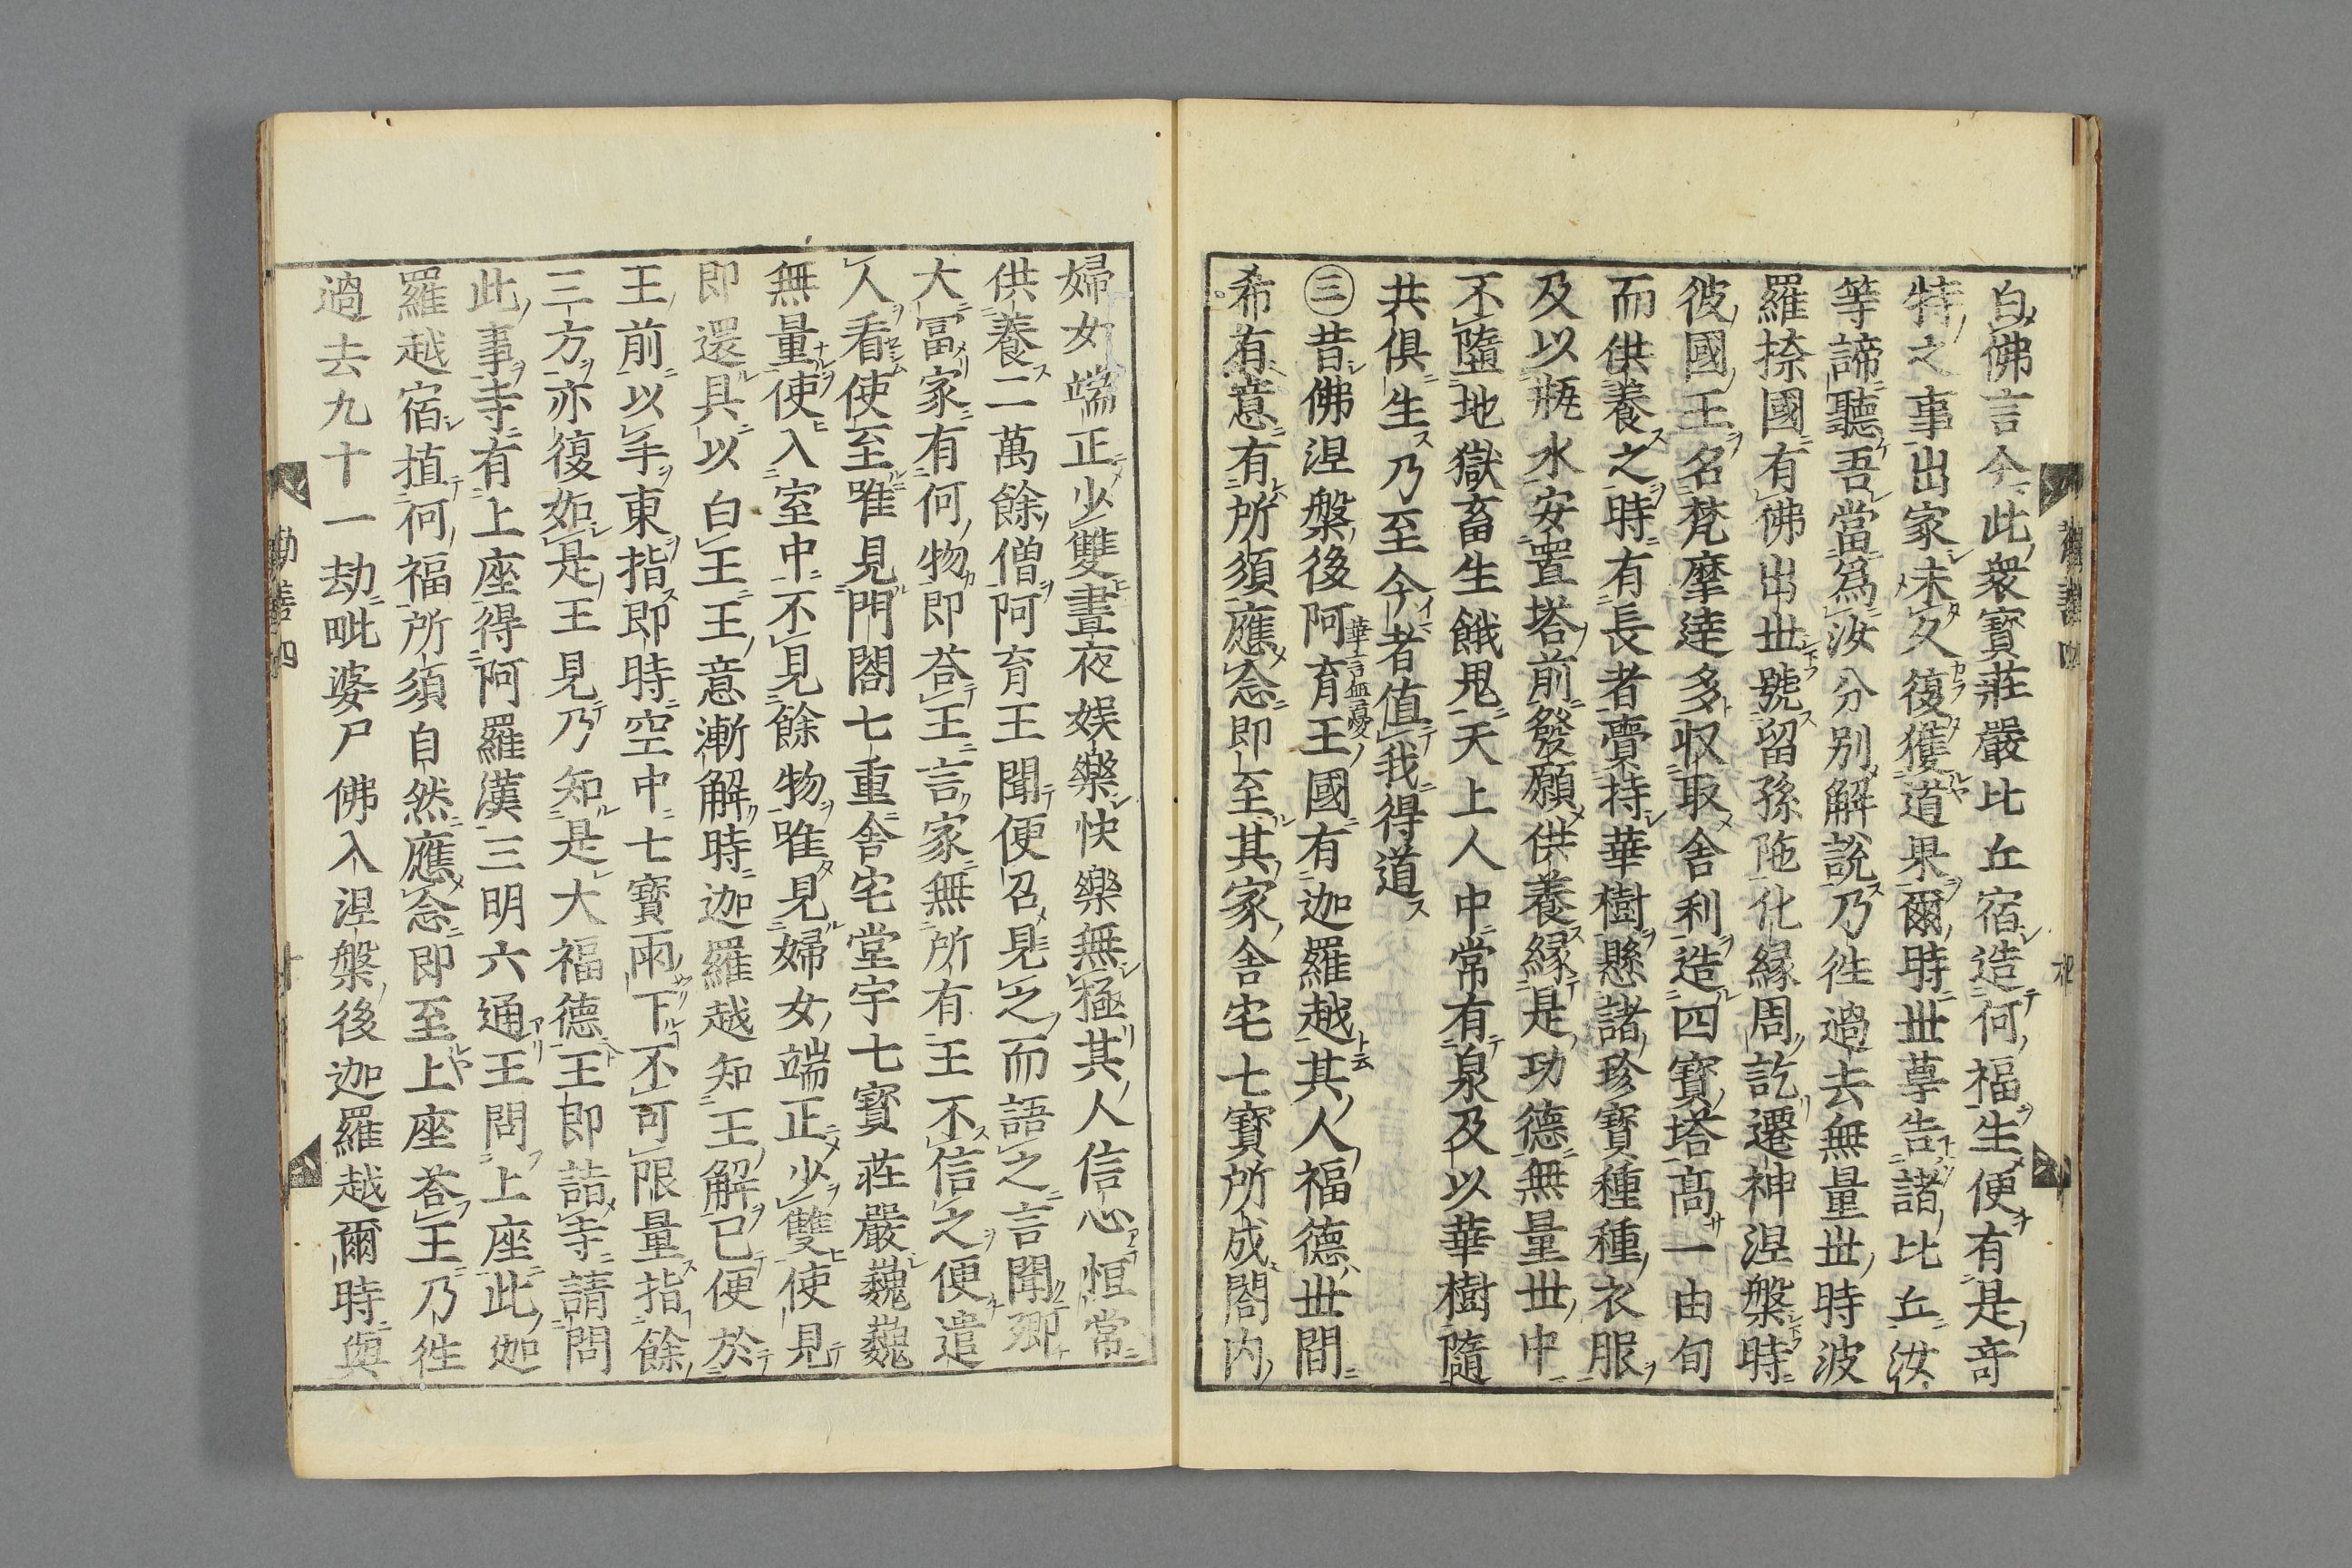 白佛言今此衆寶莊嚴比丘宿造何福生便有是竒
特之事出家未久復獲道果爾時世尊告諸比丘汝
等諦聽吾當爲汝分别解說乃徃過去無量世時波
羅捺國有佛出世號留孫陁化縁周訖遷神涅槃時
彼國王名梵摩達多収取舎利造四寶塔高一由旬
而供養之時有長者賣持華樹懸諸珍寶種種衣服
及以瓶水安置塔前發願供養縁是功德無量世中
不墮地獄畜生餓鬼天上人中常有泉及以華樹隨
共俱生乃至今者值我得道
㊂昔佛涅槃後阿育王國有迦羅越其人福德世間
華言無憂
希有意有所須應念即至其家舎宅七寶所成閤内
婦女端正少雙晝夜娯樂快樂無極其人信心恒常
供養二萬餘僧阿育王聞便召見之而語之言聞卿
大冨家有何物即荅王言家無所有王不信之便遣
人看使至唯見門閤七重舎宅堂宇七寶莊嚴巍巍
無量使入室中不見餘物唯見婦女端正少雙使見
即還具以白王王意漸解時迦羅越知王解已便於
王前以手東指即時空中七寶雨下不可限量指餘
三方亦復如是王見乃知是大福德王即詣寺請問
此事寺有上座得阿羅漢三明六通王問上座此迦
羅越宿植何福所須自然應念即至上座荅王乃徃
過去九十一劫毗婆尸佛入涅槃後迦羅越爾時與
勸善四